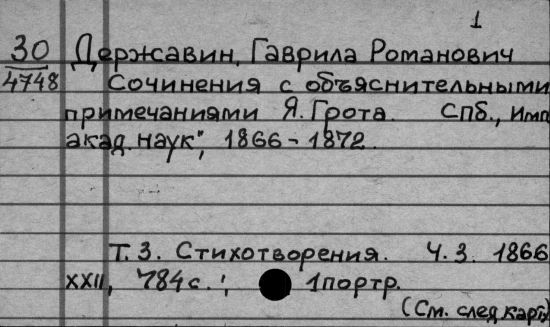 1
30
4748
Державин, Гаврила Романович
Сочинения с объяснительными
примечаниями Я. Грота. Спб., Имп.
акад. наук", 1866 - 1872.
Т. 3. Стихотворения. Ч. 3. 1866
XXII, 784 с.; 1 портр.
(См. след карт)